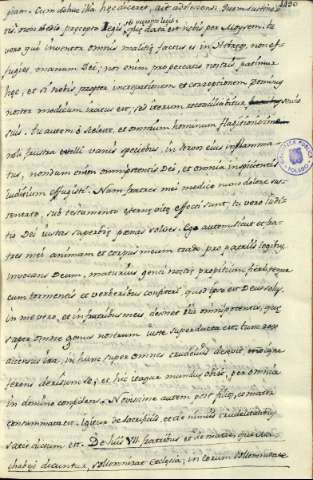 giam. Cum adhuc illa hęc diceret, ait adolescens: Quem sustine
tis, non obedio precepto Regis, sed pręcepto legis, quę data est nobis per Moysem. tu
vero qui inventor omnis malitię factus es in Hebręos, non ef-
fugies manum Dei; nos enim pro peccatis nostris patimur
hęc, et si nobis propter increpationem et correptionem Dominus
noster modicum iratus est, sed iterum reconciliabitur servis
suis. Tu autem ô sceleste, et omnium hominum flagitiosissime
noli frustra extolli vanis spebus, in servos eius inflamma-
tus, nondum enim omnipotentis Dei, et omnia inspicientis
iudicium effugisti. Nam fratres mei modico nunc dolore sus-
tentato, sub testamento ęternę vitę effecti sunt; tu vero iudi-
tio Dei iustas superbię pœnas solves. Ego autem sicut et fra-
tres mei animam et corpus meum trado pro patriis legibus
invocans Deum, maturius genti nostrę propitium fieri, teque
cum tormentis et verberibus confiteri quod ipse est Deus solus,
in me vero, et in fratribus meis desinet ira omnipotentis, quę
super omne genus nostrum iuste superducta est. tunc rex
accensus ira, in hunc super omnes crudelius desęvit, indigne
ferens derisum se; et hic itaque mundus obiit, per omnia
in domino confidens. Novissime autem post filios, et mater
consummata est. Igitur de sacrificiis, et de nimiis crudelitatibus
satis dictum est. De his VII fratribus et de matre, qui Ma-
chabęi dicuntur, sollemnizat ecclesia, in eorum sollemnitate